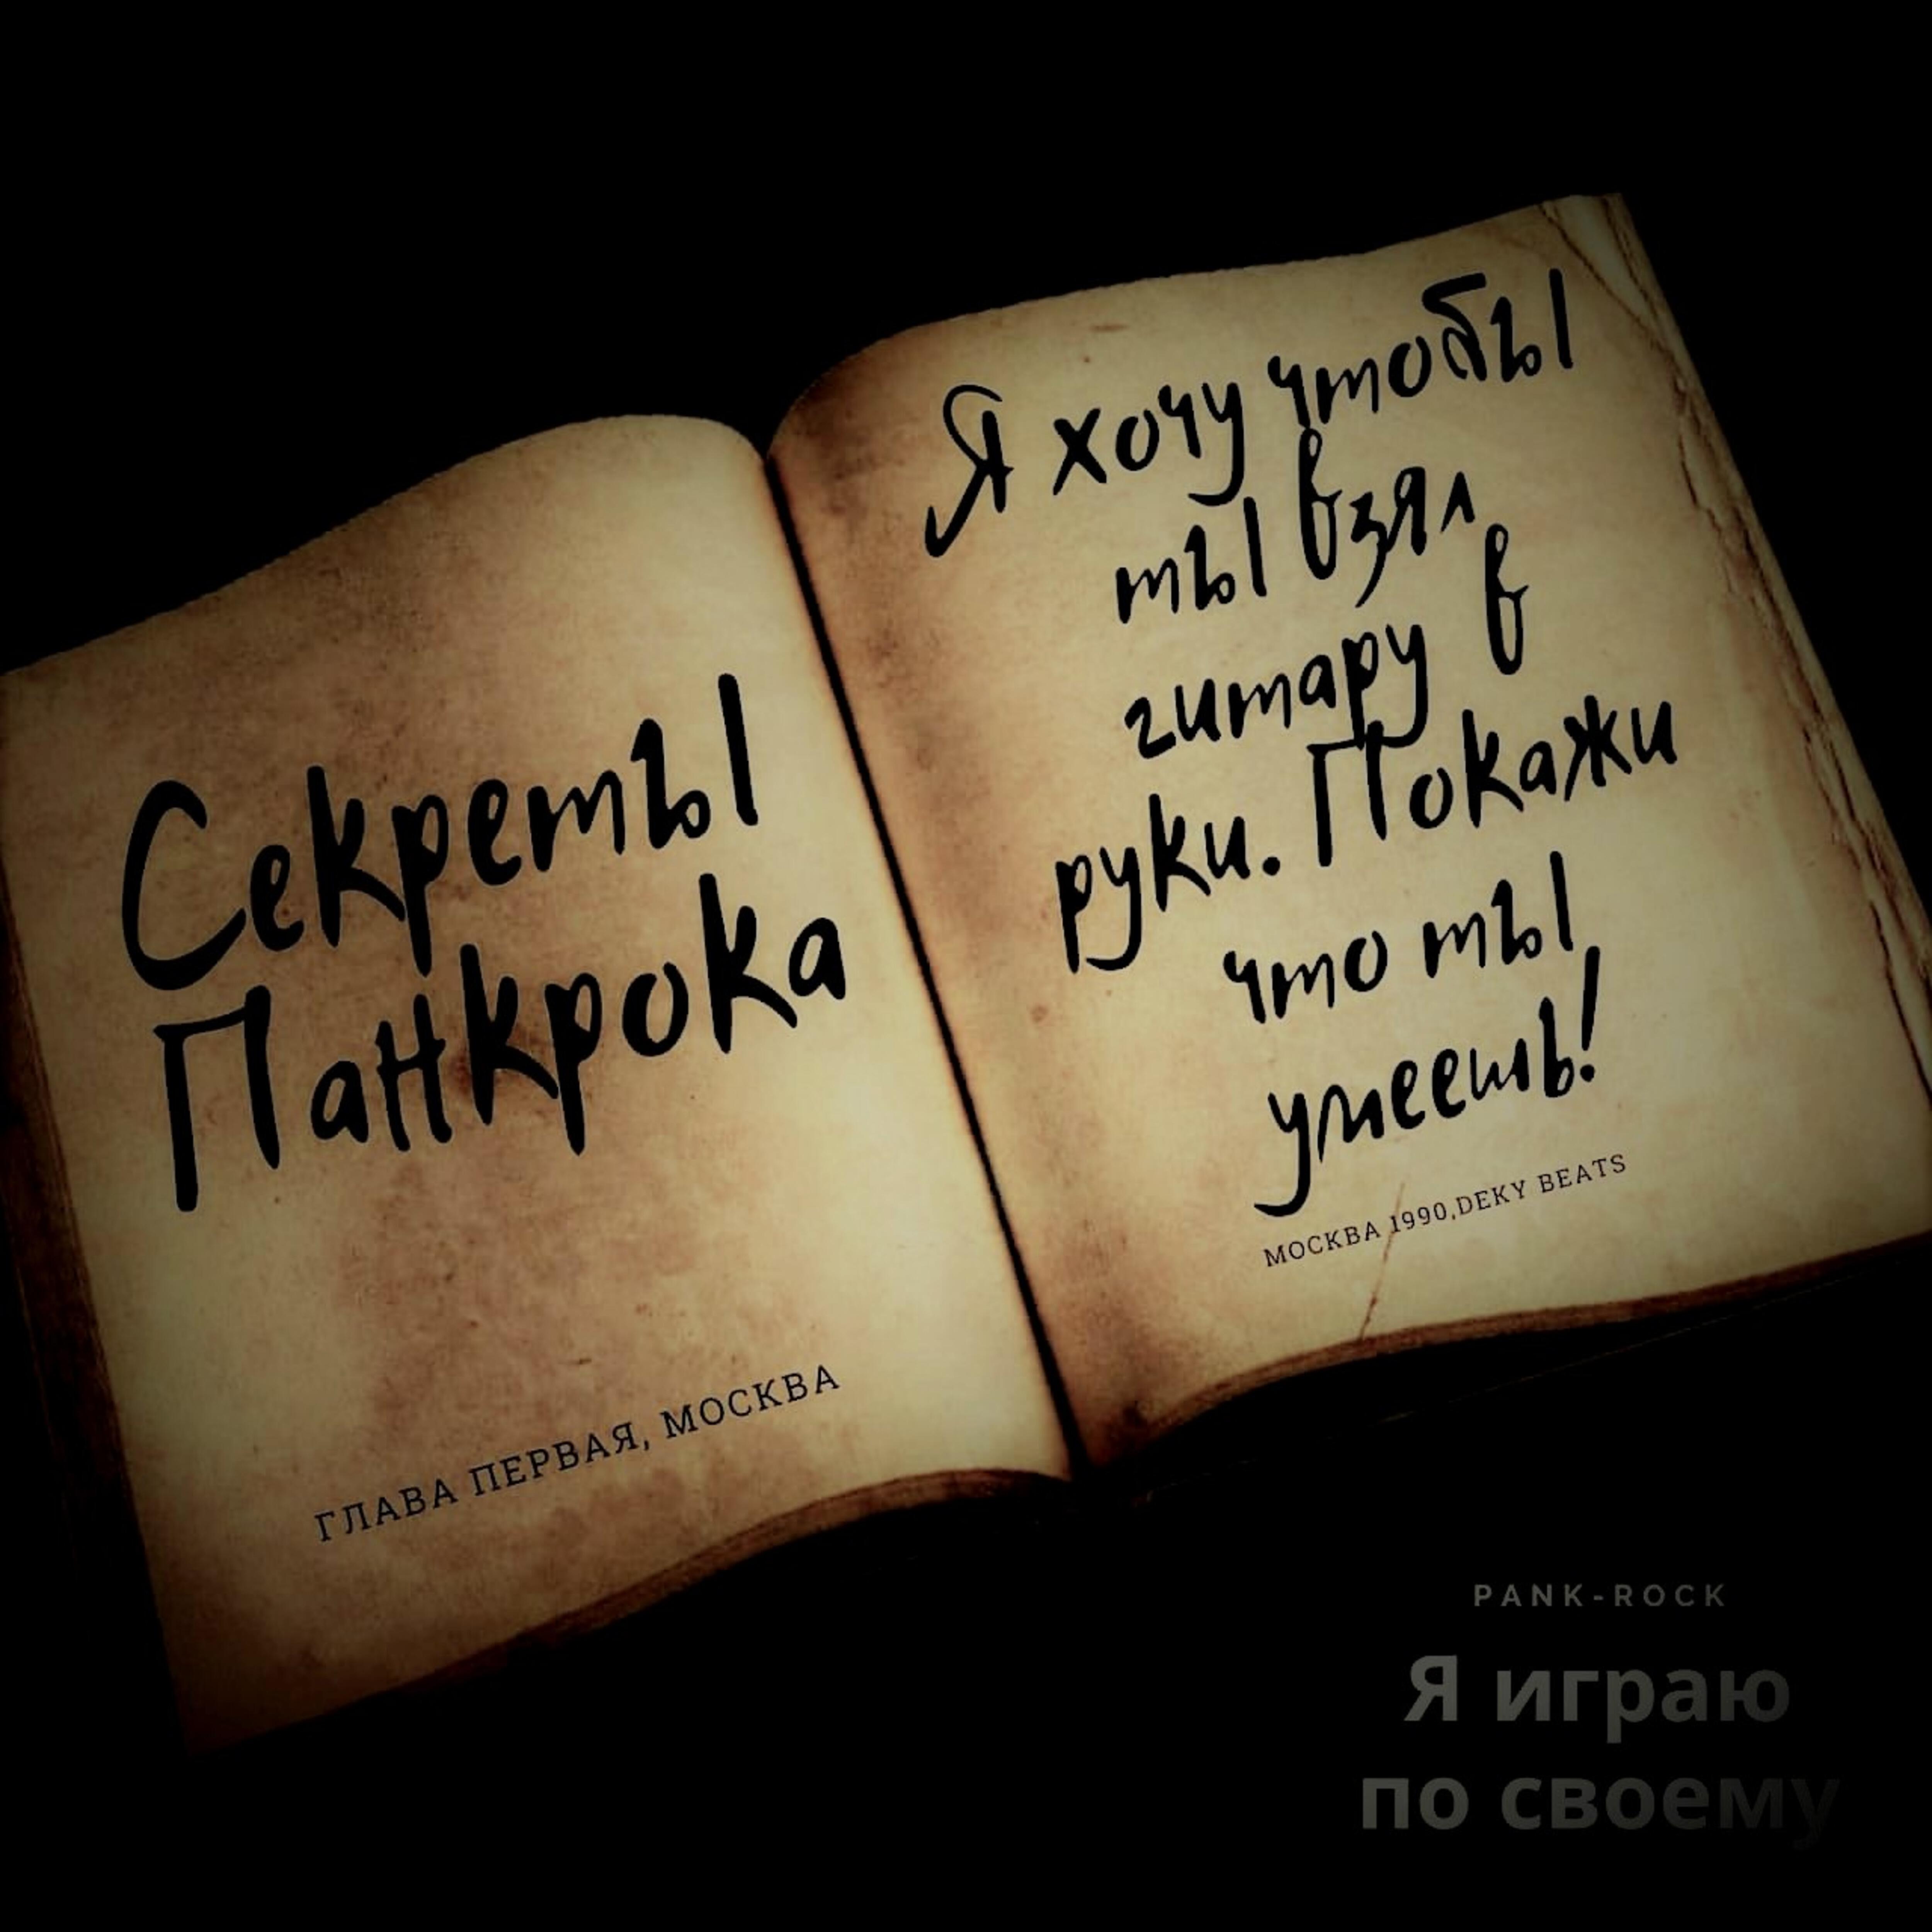 Секреты
Панкрока
ГЛАВА ПЕРВАЯ, МОСКВА
Я хочу чтобы
ты взял
гитару в
руки. Покажи
что ты
умеешь!
МОСКВА 1990,DEKY BEATS
PANK-ROCK
Я играю
по своему